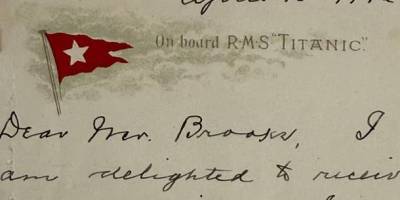 On board R·M·S "TITANIC".
Dear Mr. Brooks, I
am delighted to receiv